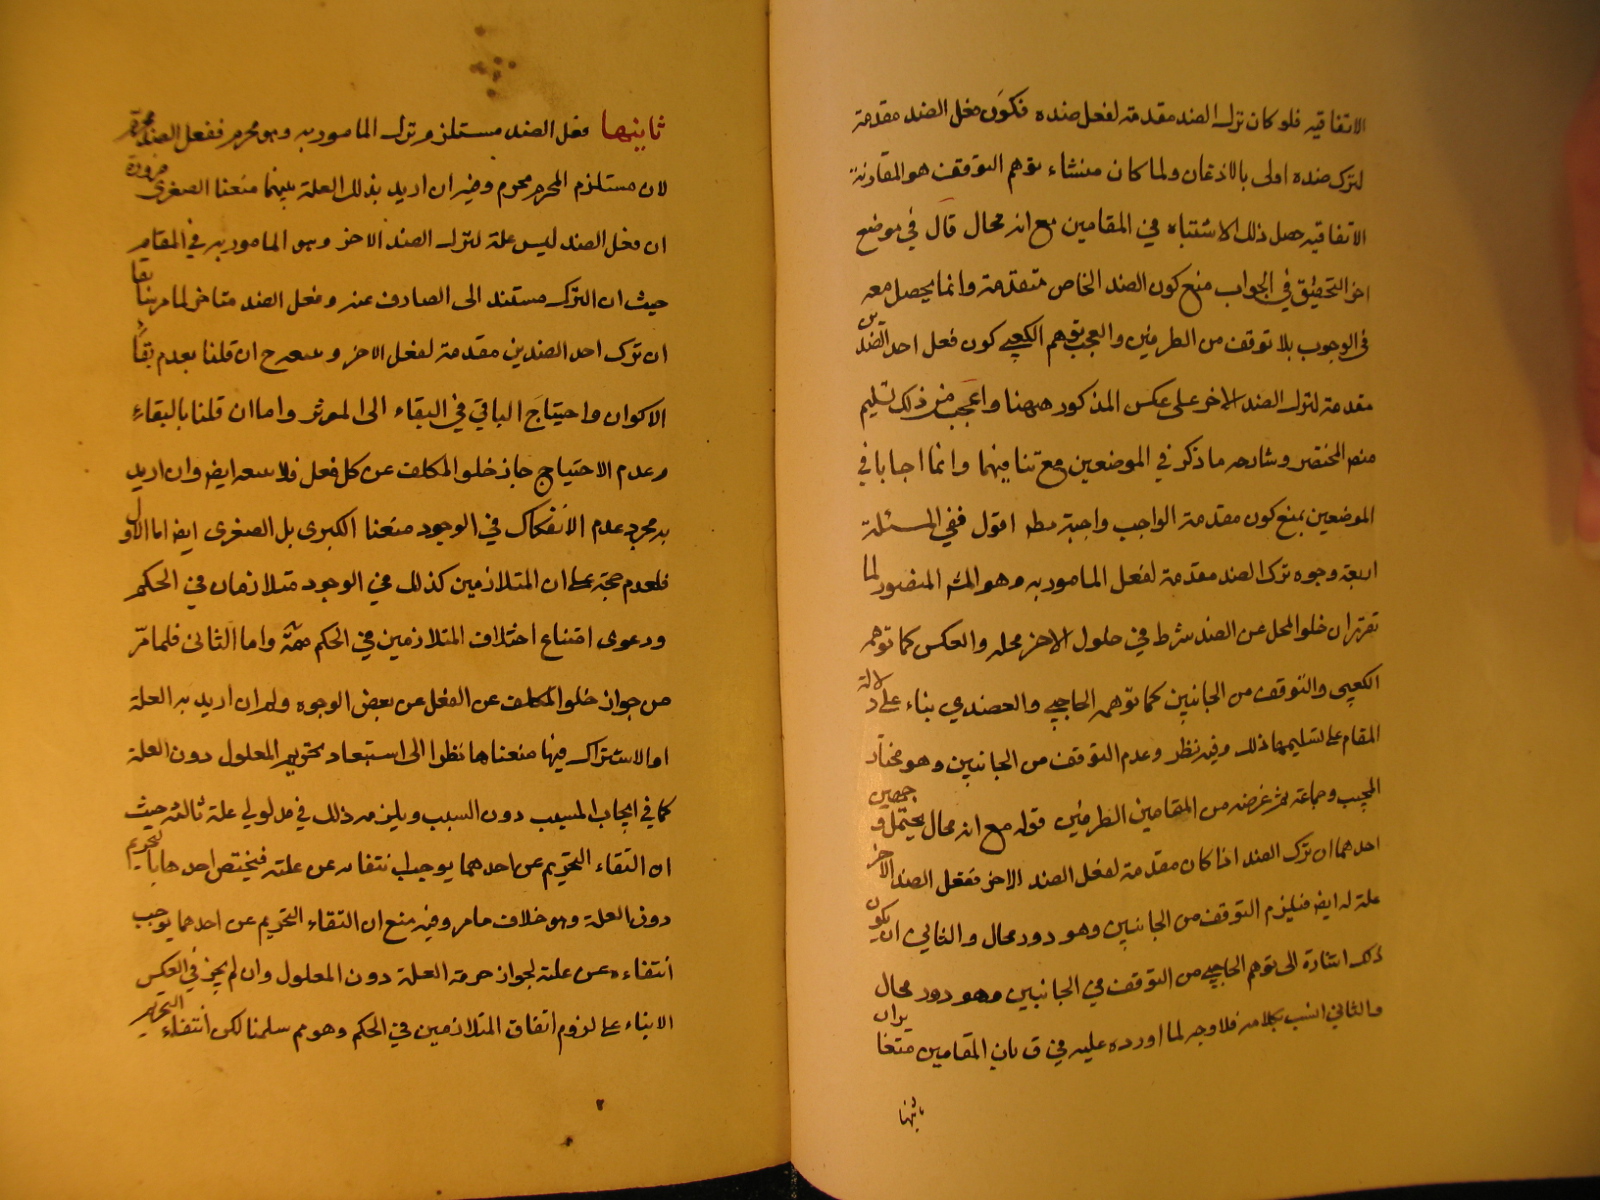 الاتفاقيه فلو كان ترك الضد مقدمة لفعل ضده فكون فعل الضد مقدمة
لترك ضده اولى بالاذعان ولما كان منشاء توهم التوقف هو المقارنة
الاتفاقيه حصل ذلك الاشتباه في المقامين مع انه محال قال في موضع
اخر التحقيق في الجواب منع كون الضد الخاص متقدمة وانما يحصل معه
في الوجوب بلا توقف من الطرفين والعجب توهم الكعبي كون فعل احد الضدين
مقدمة لترك الضد الاخر على عكس المذكور ههنا واعجب من ذلك تسليم
المختصر وشارحه ما ذكر في الموضعين مع تنافيهما وانما اجابا في
الموضعين بمنع كون مقدمة الواجب واجبة مط اقول ففي المسئلة
اربعة وجوه ترك الضد مقدمة لفعل المامور به وهو المش المنصور لما
تقرر ان خلو المحل عن الضد شرط في حلول الاخر محله والعكس كما توهمه
الكعبي والتوقف من الجانبين كما توهمه الحاجبي والعضدي بناء على دلالة
المقام على تسليمهما ذلك وفيه نظر وعدم التوقف من الجانبين وهو مختار
المجيب وجماعة ثم غرضه من المقامين الطرفين قوله مع انه محال يحتمل وجهين
احدهما ان ترك الضد اذا كان مقدمة لفعل الضد الاخر ففعل الضد الاخر
علة له ايض فيلزم التوقف من الجانبين وهو دور محال والثاني ان يكون
ذلك اشارة الى توهم الحاجبي من التوقف في الجانبين وهو دور محال
والثاني انسب بكلامه فلا وجه لما اورده عليه في ق بان المقامين متغايران
ثانيها
ثانيها فعل الضد مستلزم ترك المامور به وهو محرم ففعل الضد محرم
لان مستلزم المحرم محرم وفيه ان اريد بذلك العلة بينهما منعنا الصغرى ضرورة
ان فعل الضد ليس علة لترك الضد الاخر وهو المامور به في المقام
حيث ان الترك مستند الى الصارف عنه وفعل الضد متاخر لما مر سابقا
ان ترك احد الضدين مقدمة لفعل الاخر و ان قلنا بعدم بقاء
الاكوان واحتياج الباقي في البقاء الى الموثر واما ان قلنا بالبقاء
وعدم الاحتياج جاز خلو المكلف عن كل فعل فلا ايض وان اريد
به مجرد عدم الانفكاك في الوجود منعنا الكبرى بل الصغرى ايض اما الاول
فلعدم حجة على ان المتلازمين كذلك في الوجود متلازمان في الحكم
ودعوى امتناع اختلاف المتلازمين في الحكم واما الثانى فلما مر
من جواز خلو المكلف عن الفعل عن بعض الوجوه وان اريد به العلة
او الاشتراك فيها منعناها نظرا الى استبعاد تحريم المعلول دون العلة
كما في ايجاب المسبب دون السبب ويلزمه ذلك في معلولي علة ثالثة حيث
ان انتفاء التحريم عن احدهما يوجب انتفائه عن علته فيختص احدهما بالتحريم
دون العلة وهو خلاف ما مر وفيه منع ان انتفاء التحريم عن احدهما يوجب
انتفاءه عن علته لجواز حرمة العلة دون المعلول وان لم يجز في العكس
الا بناء على لزوم اتفاق المتلازمين في الحكم وهو مم سلمنا لكن انتفاء التحريم